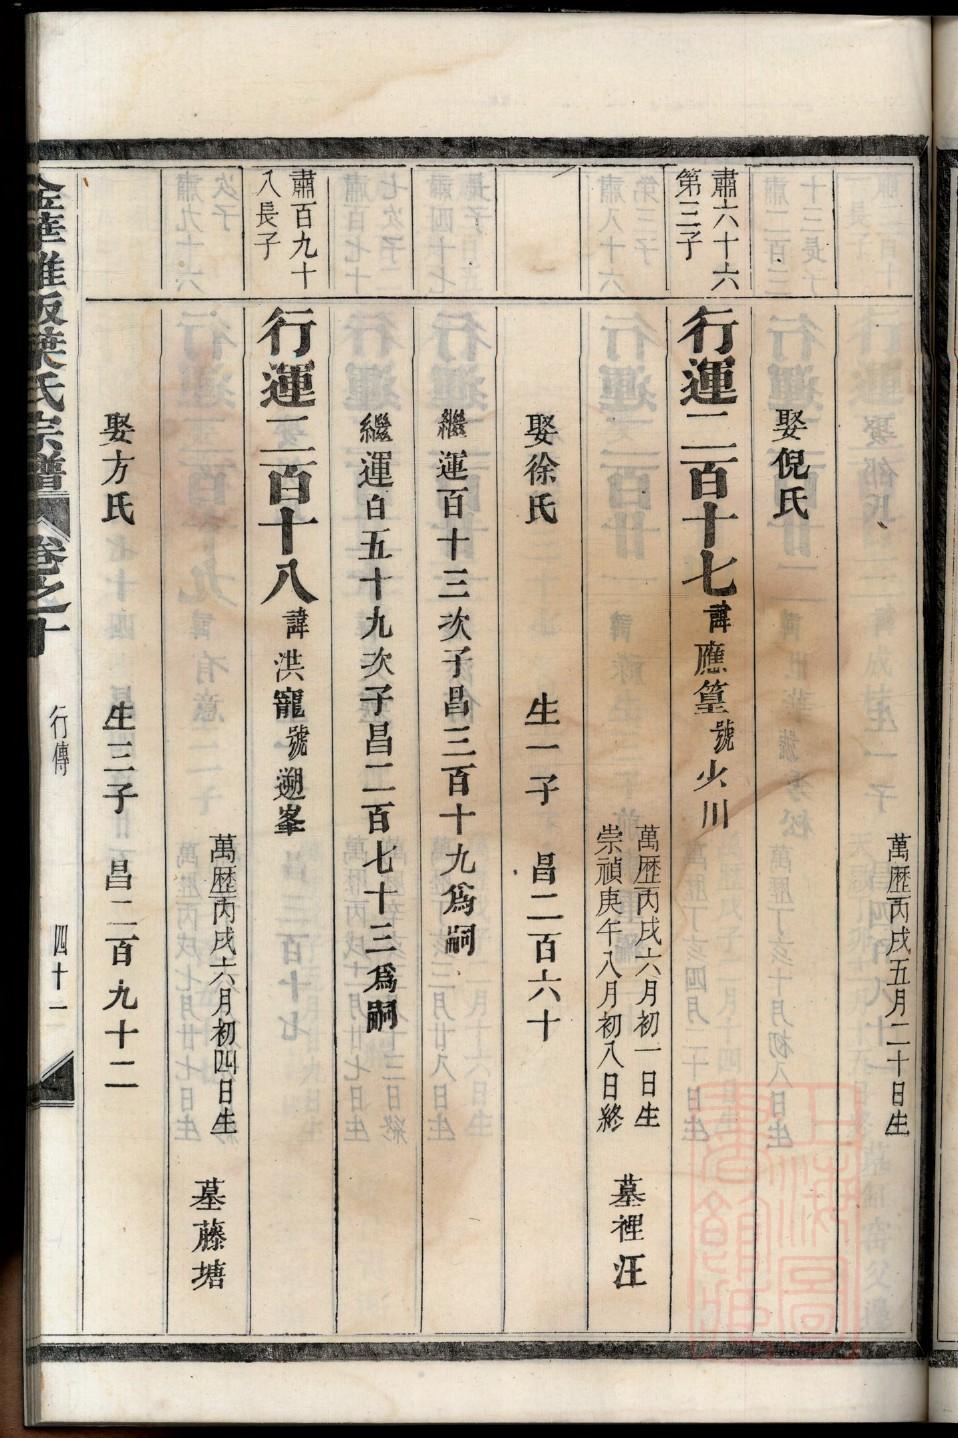 萬歷丙戌五月二十日生
娶倪氏
肅六十六
第三子
行運二百十七諱應篁號少川
萬歷丙戌六月初一日生
崇禎庚午八月初八日終
墓裡汪
娶徐氏 生一子 昌二百六十
繼運百十三次子昌三百十九爲嗣
繼運百五十九次子昌二百七十三爲嗣
肅百九十
八長子
行運二百十八諱洪寵號遡峯
萬歷丙戌六月初四日生
墓藤塘
娶方氏 生三子 昌二百九十二
葉氏宗譜 卷之十 行傳 四十一